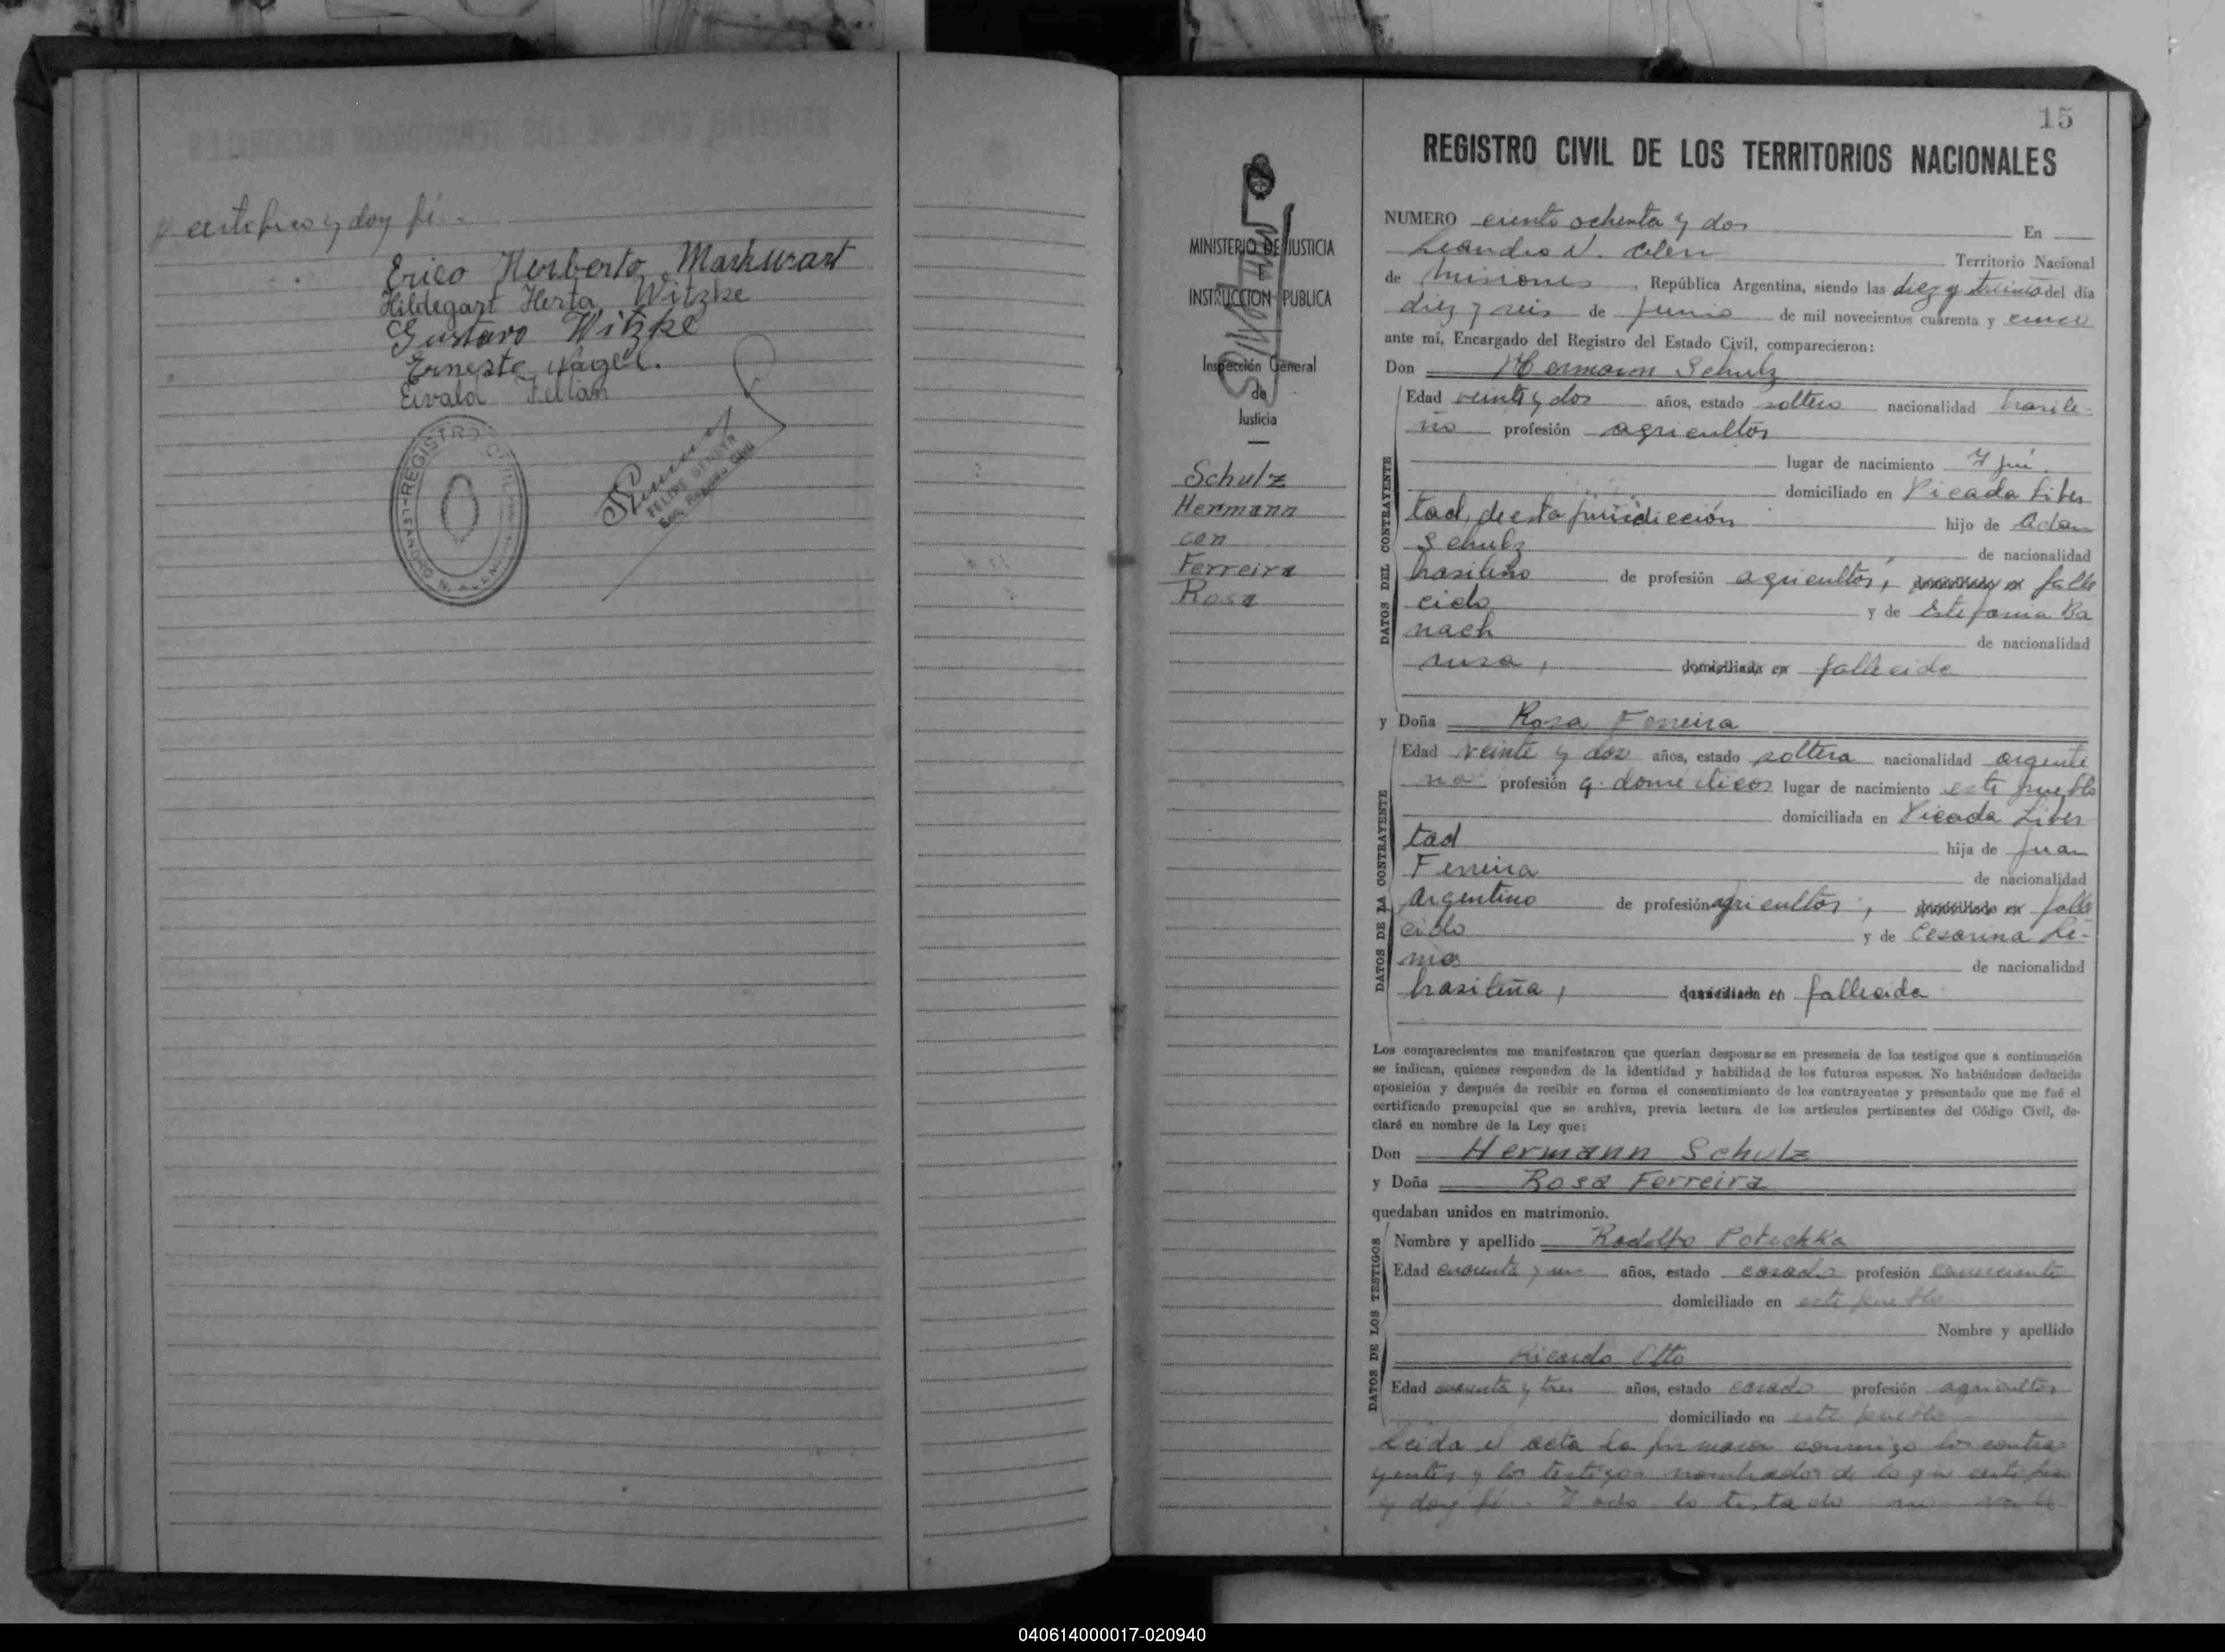 y certifico y doy fé.-
Erico Herberto Markwart
Hildegart Herta Witzke
Gustavo Witzke
Ernesto Nágel.
Eivald Fellan
REGISTRO CIVIL
LEANDRO N. ALEM
FELIPE
Enc. Registro Civil
MINISTERIO DE JUSTICIA
E
INSTRUCCION PUBLICA
Inspección General
de
Justicia
Schulz
Hermann
con
Ferreira
Rosa
15
REGISTRO CIVIL DE LOS TERRITORIOS NACIONALES
NUMERO ciento ochenta y dos En
Leandro N. Alem Territorio Nacional
de Misiones. República Argentina, siendo las diez y treinta del día
diez y seis de Junio de mil novecientos cuarenta y cinco
ante mí, Encargado del Registro del Estado Civil, comparecieron:
Don Hermann Schulz
Edad veinte y dos años, estado soltero nacionalidad brasile-
ño profesión agricultor
lugar de nacimiento Yjuí
domiciliado en Picada Liber
tad, de esta jurisdicción hijo de Adan
Schulz de nacionalidad
brasileño de profesión agricultor, domiciliado en falle
cido y de Estefania Ba
nach de nacionalidad
rusa, domiciliada en fallecida
y Doña Rosa Ferreira
Edad veinte y dos años, estado soltera nacionalidad argenti
na profesión q. domésticos lugar de nacimiento este pueblo
domiciliada en Picada Liber
tad hija de Juan
Ferreira de nacionalidad
argentino de profesión agricultor, domiciliado en falle
cido y de Cesarina Le-
mos de nacionalidad
brasileña, domiciliada en fallecida
Los comparecientes me manifestaron que querían desposarse en presencia de los testigos que a continuación
se indican, quienes responden de la identidad y habilidad de los futuros esposos. No habiéndose deducido
oposición y después de recibir en forma el consentimiento de los contrayentes y presentado que me fué el
certificado prenupcial que se archiva, previa lectura de los artículos pertinentes del Código Civil, de-
claré en nombre de la Ley que:
Don Hermann Schulz
y Doña Rosa Ferreira
quedaban unidos en matrimonio.
Nombre y apellido Rodolfo Potschka
Edad cuarenta y un años, estado casado profesión comerciante
domiciliado en este pueblo
Nombre y apellido
Ricardo Otto
Edad cuarenta y tres años, estado casado profesión agricultor
domiciliado en este pueblo
Leida el acta la firmaron conmigo los contra-
yentes y los testigos nombrados de lo que certifico
y doy fé.- Todo lo testado no vale
DATOS DEL CONTRAYENTE
DATOS DE LA CONTRAYENTE
DATOS DE LOS TESTIGOS
040614000017-020940